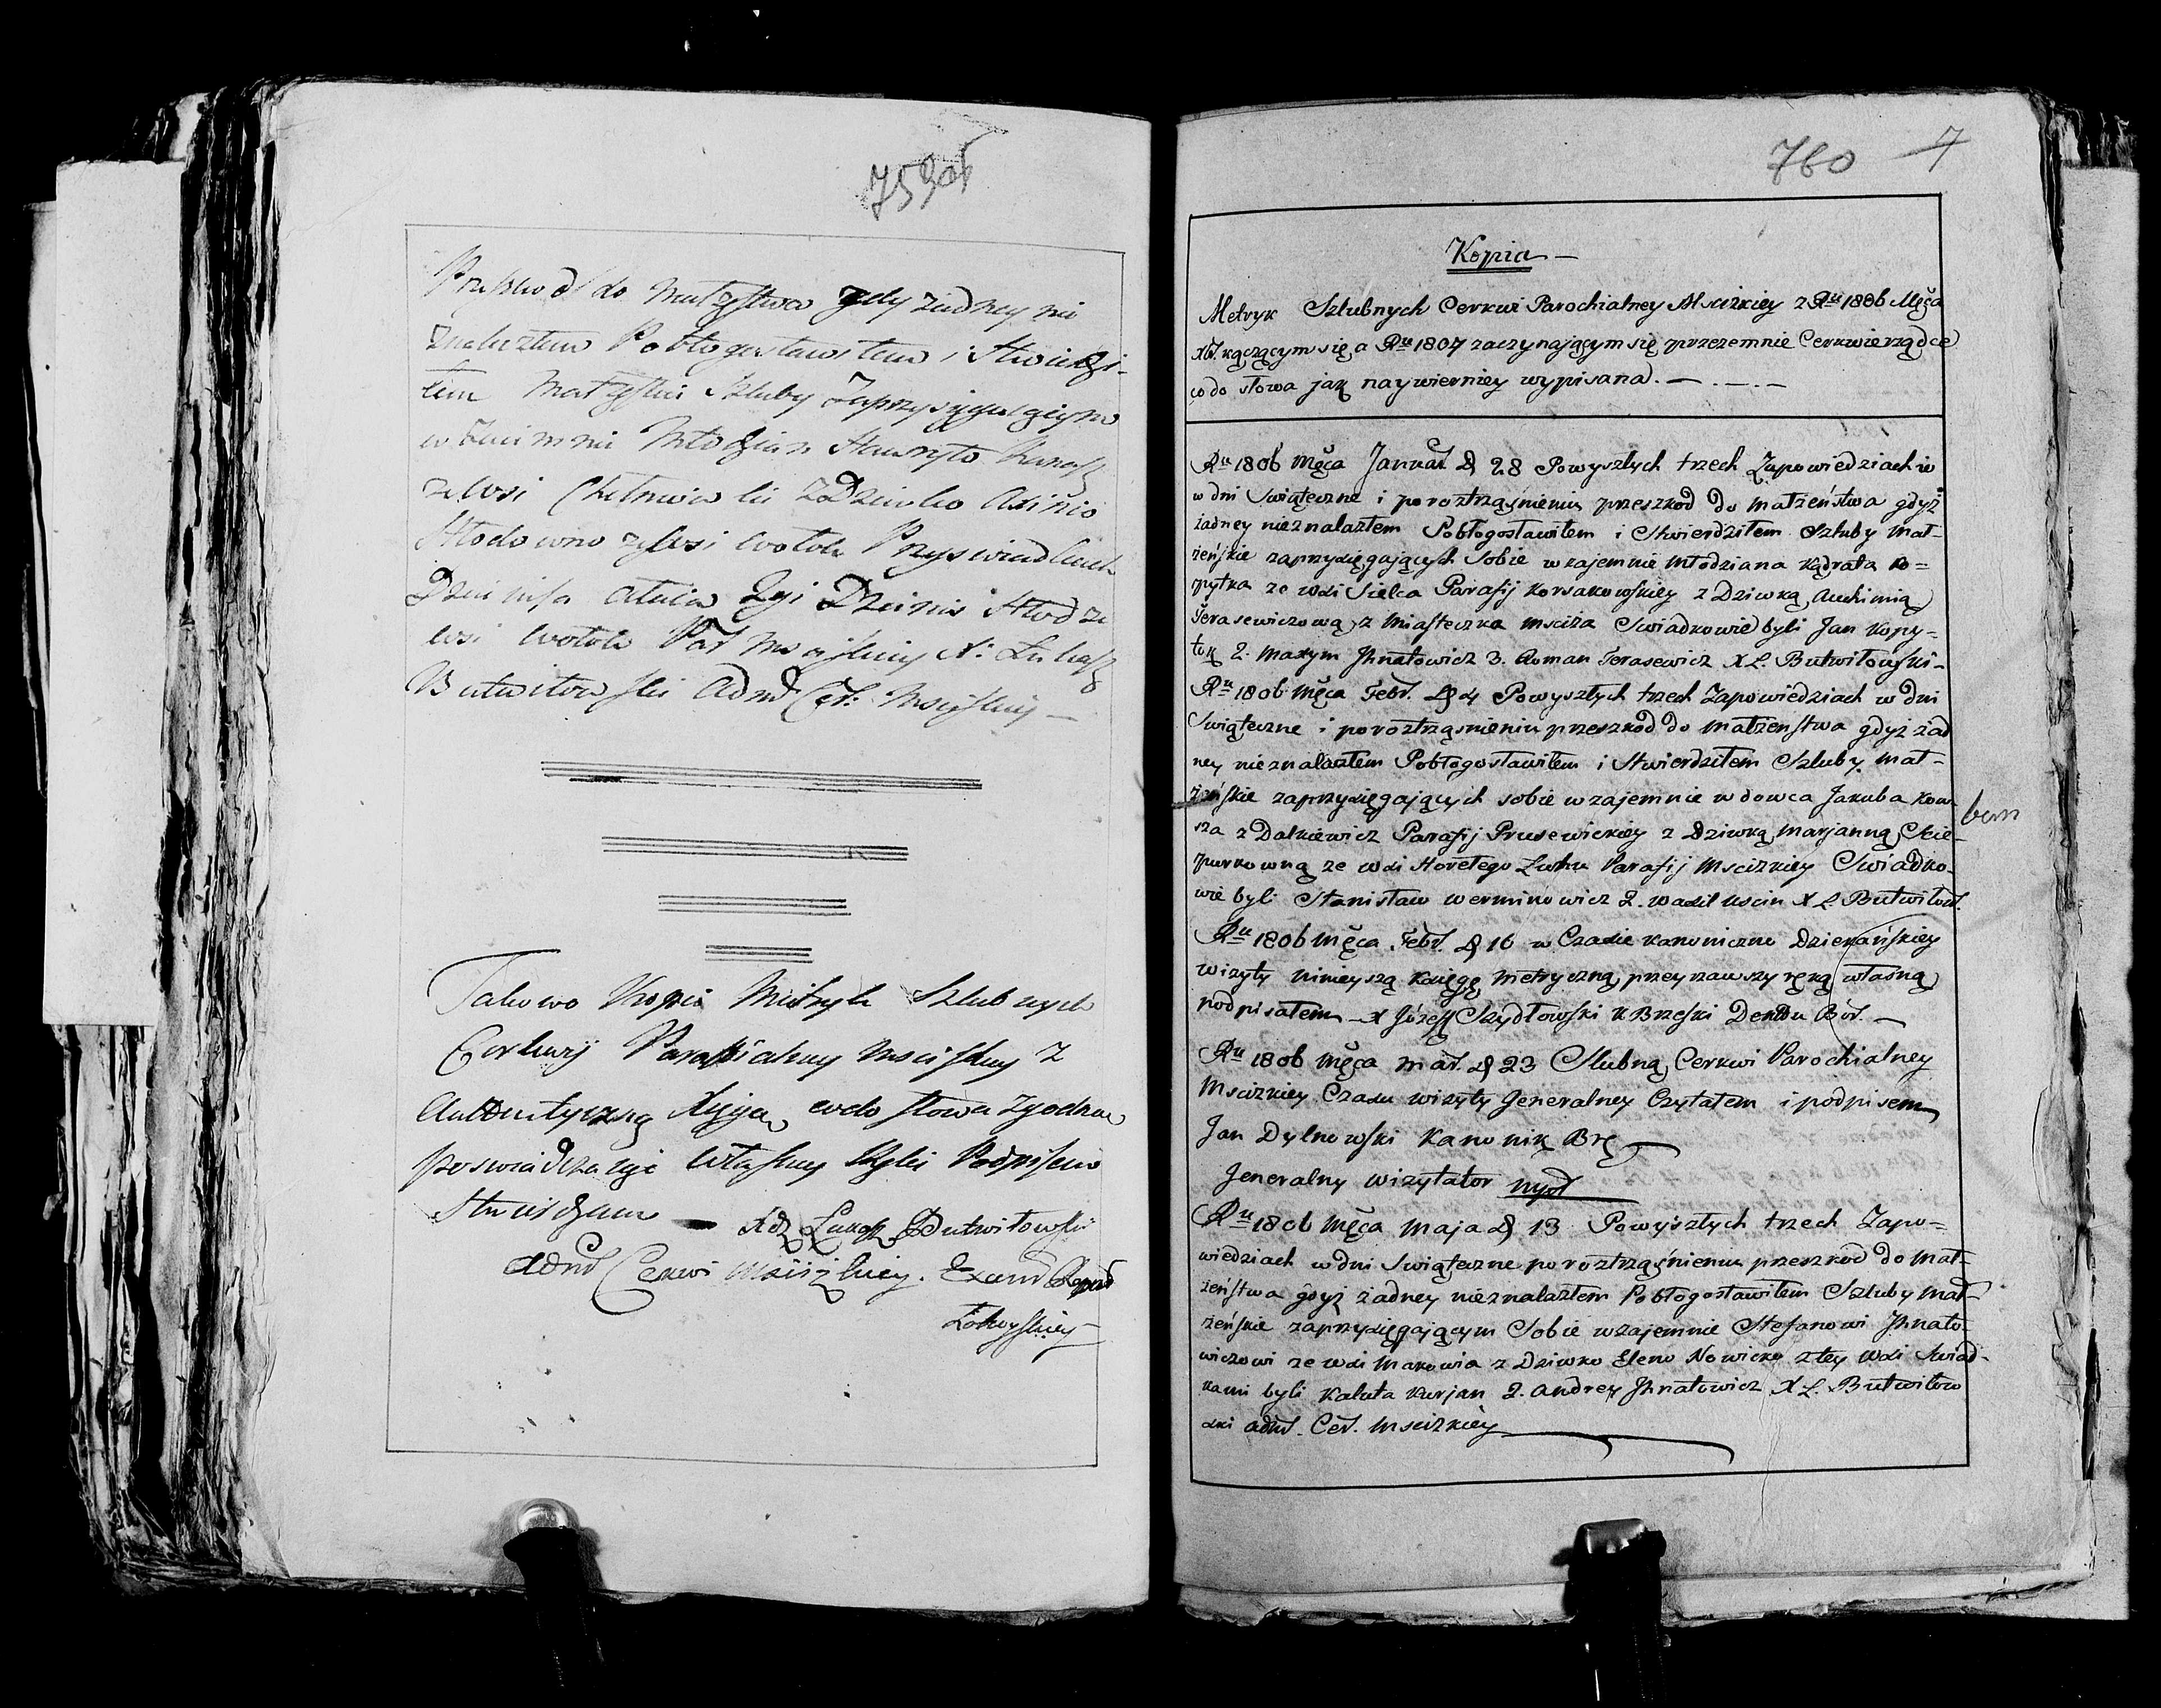 759 об
Przeszkod do Małzstwa gdy zadney nie
znalazłem Pobłogosławiłem i Stwierdzi-
łem Małzskie Szluby Zaprzysięgaiącym
wzaimnie Młodzian Hawryło
ze wsi z Dziewko
ze wsi Wołoki Przy swiadkach
Dzienisa Dzienis ze
wsi Wołoki Par Mscizkiey X. Łukasz
Butwiłowski Adm Cer: Mscizkiey —
Takowo Kopia Mitryk Szlubnych
Cerkwij Parafialney Mscizkiey z
Autentyczną Xięgą co do słowa zgodna
poswiadczaiąc własney Ręki Podpisem
Stwierdzam — Xdz Łukasz Butwiłowski
Adm Cerkwi Mścizkiey.
760 7
Kopia —
Metryk Szlubnych Cerkwi Parochialney Mscizkiey z Ru 1806 Męca
kączącym się a Ru 1807 zaczynającym się przezemnie Cerkwie rządce
co do słowa jak naywierniey wypisana. — . — . —
Ru 1806 Męca Januar D 28 Powyszłych trzech Zapowiedziach w
w dni Swiąteczne i po roztrząśnieniu przeszkod do małżeństwa gdyż
żadney nieznalazłem Pobłogosławiłem i Stwierdziłem Szluby Mał-
żeńskie zaprzysięgających Sobie wzajemnie Młodziana Kądrata Ko=
pytka ze wsi Sielca Parafij Korsakowskiey z Dziwką Auchimią
Terasewiczową z Miasteczka Msciża Swiadkowie byli Jan Kopy=
tok 2. Maxym Jhnatowicz 3. Roman Terasewicz X Ł Butwiłowski -
Ru 1806 Męca Febr. D 4 Powyszłych trzech Zapowiedziach w dni
Swiąteczne i po roztrząsnieniu przeszkod do Małżenstwa gdyż żad
ney nieznalazłem Pobłogosławiłem i Stwierdziłem Szluby Mał-
żeńskie zaprzysięgających sobie wzajemnie wdowca Jakuba Kow
sza z Dalkiewicz Parafij Prusewickiey z Dziwką Marjanną Scie-
purkowną ze wsi Horełego Ługu Parafij Mscizkiey Swiadko-
wie byli Stanisław Werminowicz 2. Wasil Uscin X Ł Butwiłow.
Ru 1806 Męca Febr. D 16 w Czasie Kanoniczno Dziekańskiey
wizyty ninieyszą Księgę Metryczną przeyrzawszy ręką własną
podpisałem — X Józeff Szydłowski K Brzeski
Ru 1806 Męca Mar. D 23 Slubną Cerkwi Parochialney
Mscizkiey Czasu wizyty Jeneralney Czytałem i podpisem
Jan Dylnowski Kanonik Brę
Jeneralny Wizytator
Ru 1806 Męca Maja D 13 Powyszłych trzech Zapo=
wiedziach w dni Swiąteczne po roztrząśnieniu przeszkod do Mał-
żeństwa gdyż żadney nieznalazłem Pobłogosławiłem Szluby Mał-
żeńskie zaprzysięgającym Sobie wzajemnie Stefanowi Jhnato-
wiczowi ze wsi Makowia z Dziwko Eleno Nowicko z tey wsi Swiad-
kami byli Kaluta Kurjan 2. Andrey Jhnatowicz X Ł. Butwiłow
ski adm. Cer. Mscizkiey